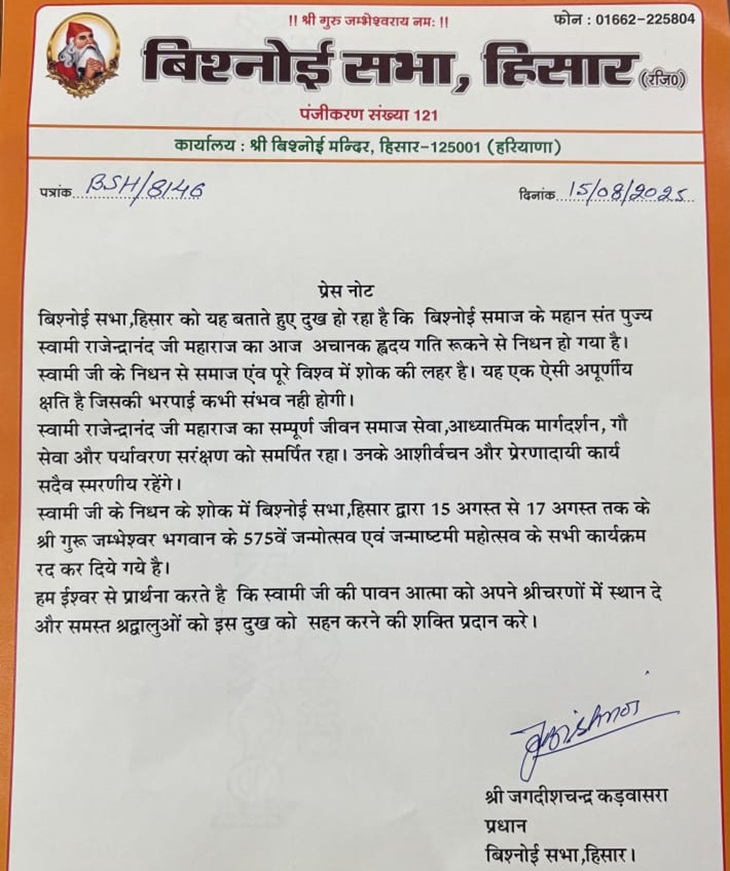 !! श्री गुरु जम्भेश्वराय नमः !!
फोन : 01662-225804
बिश्नोई सभा, हिसार (रजि0)
पंजीकरण संख्या 121
कार्यालय : श्री बिश्नोई मन्दिर, हिसार-125001 (हरियाणा)
पत्रांक BSH/8146 दिनांक 15/08/2025
प्रेस नोट
बिश्नोई सभा,हिसार को यह बताते हुए दुख हो रहा है कि बिश्नोई समाज के महान संत पुज्य
स्वामी राजेन्द्रानंद जी महाराज का आज अचानक ह्रदय गति रूकने से निधन हो गया है।
स्वामी जी के निधन से समाज एंव पूरे विश्व में शोक की लहर है। यह एक ऐसी अपूर्णीय
क्षति है जिसकी भरपाई कभी संभव नही होगी।
स्वामी राजेन्द्रानंद जी महाराज का सम्पूर्ण जीवन समाज सेवा,आध्यात्मिक मार्गदर्शन, गौ
सेवा और पर्यावरण सरंक्षण को समर्पित रहा। उनके आशीर्वचन और प्रेरणादायी कार्य
सदैव स्मरणीय रहेंगे।
स्वामी जी के निधन के शोक में बिश्नोई सभा,हिसार द्वारा 15 अगस्त से 17 अगस्त तक के
श्री गुरू जम्भेश्वर भगवान के 575वें जन्मोत्सव एवं जन्माष्टमी महोत्सव के सभी कार्यक्रम
रद कर दिये गये है।
हम ईश्वर से प्रार्थना करते है कि स्वामी जी की पावन आत्मा को अपने श्रीचरणों में स्थान दे
और समस्त श्रद्वालुओं को इस दुख को सहन करने की शक्ति प्रदान करे।
श्री जगदीशचन्द्र कड़वासरा
प्रधान
बिश्नोई सभा,हिसार।